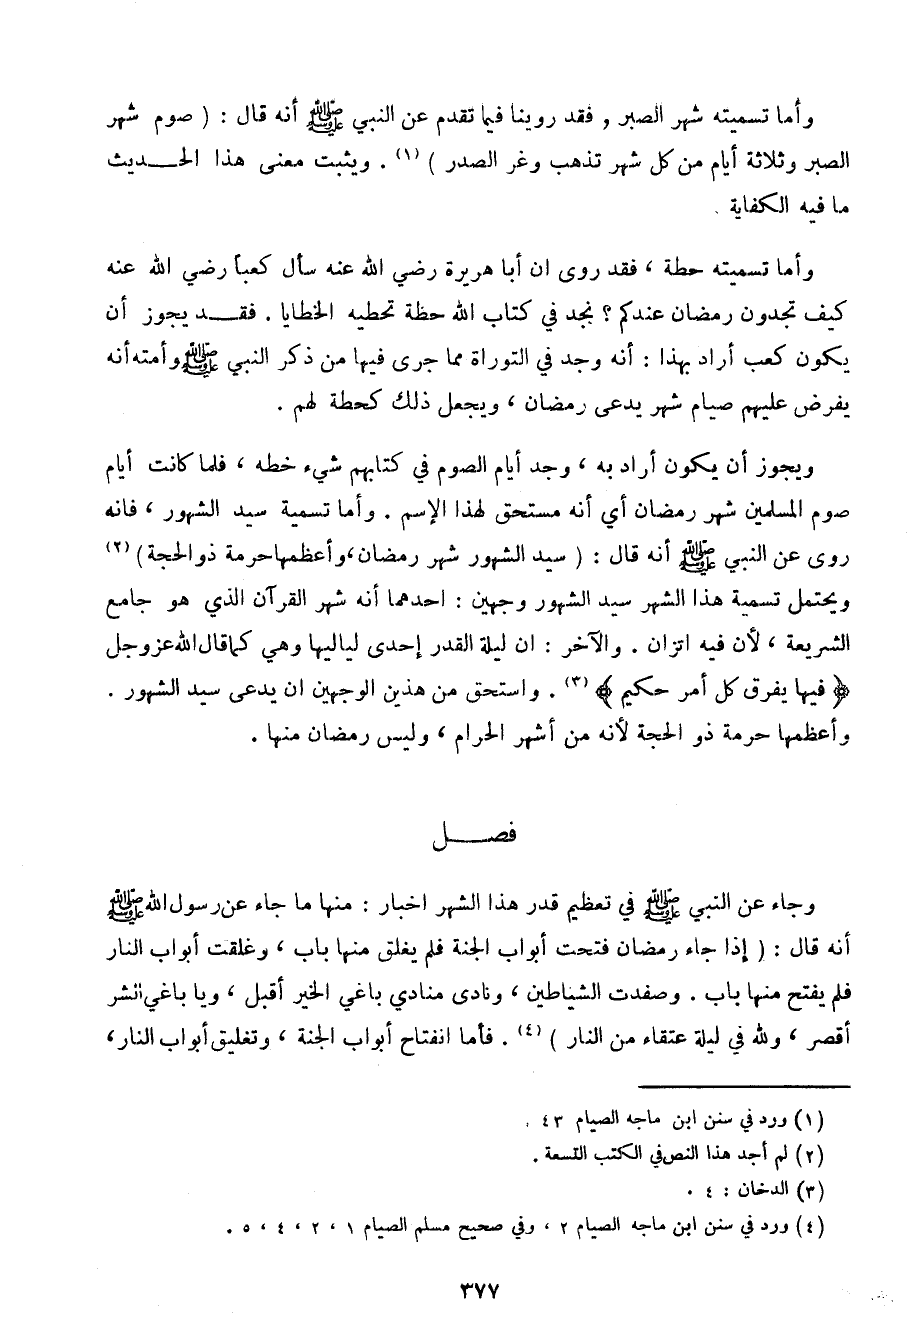 وأما تسميته شهر الصبر , فقد روينا فيما تقدم عن النبي ﷺ أنه قال : ( صوم شهر
الصبر وثلاثة أيام من كل شهر تذهب وغر الصدر ) (١) . ويثبت معنى هذا الحـــديث
ما فيه الكفاية .
وأما تسميته حطة ، فقد روى ان أبا هريرة رضي الله عنه سأل كعباً رضي الله عنه
كيف تجدون رمضان عندكم ؟ نجد في كتاب الله حظة تحطيه الخطايا . فقـــد يجوز أن
يكون كعب أراد بهذا : أنه وجد في التوراة مما جرى فيها من ذكر النبي ﷺ وأمته أنه
يفرض عليهم صيام شهر يدعى رمضان ، ويجعل ذلك كحطة لهم .
ويجوز أن يكون أراد به ، وجد أيام الصوم في كتابهم شيء خطه ، فلما كانت أيام
صوم المسلمين شهر رمضان أي أنه مستحق لهذا الإسم . وأما تسمية سيد الشهور ، فانه
روى عن النبي ﷺ أنه قال : ( سيد الشهور شهر رمضان، وأعظمها حرمة ذو الحجة ) (٢)
ويحتمل تسمية هذا الشهر سيد الشهور وجهين : احدهما أنه شهر القرآن الذي هو جامع
الشريعة ، لأن فيه اتزان . والآخر : ان ليلة القدر إحدى لياليها وهي كما قال الله عز وجل
﴿ فيها يفرق كل أمر حكيم ﴾ (٣) . واستحق من هذين الوجهين ان يدعى سيد الشهور .
وأعظمها حرمة ذو الحجة لأنه من أشهر الحرام ، وليس رمضان منها .
فصـــل
وجاء عن النبي ﷺ في تعظيم قدر هذا الشهر اخبار : منها ما جاء عن رسول الله ﷺ
أنه قال : ( إذا جاء رمضان فتحت أبواب الجنة فلم يغلق منها باب ، وغلقت أبواب النار
فلم يفتح منها باب . وصفدت الشياطين ، ونادى منادي باغي الخير أقبل ، ويا باغي الشر
أقصر ، ولله في ليلة عتقاء من النار ) (٤) . فأما انفتاح أبواب الجنة ، وتغليق أبواب النار ،
(١) ورد في سنن ابن ماجه الصيام ٤٣ .
(٢) لم أجد هذا النص في الكتب التسعة .
(٣) الدخان : ٤ .
(٤) ورد في سنن ابن ماجه الصيام ٢ ، وفي صحيح مسلم الصيام ١ ، ٢ ، ٤ ، ٥ .
٣٧٧